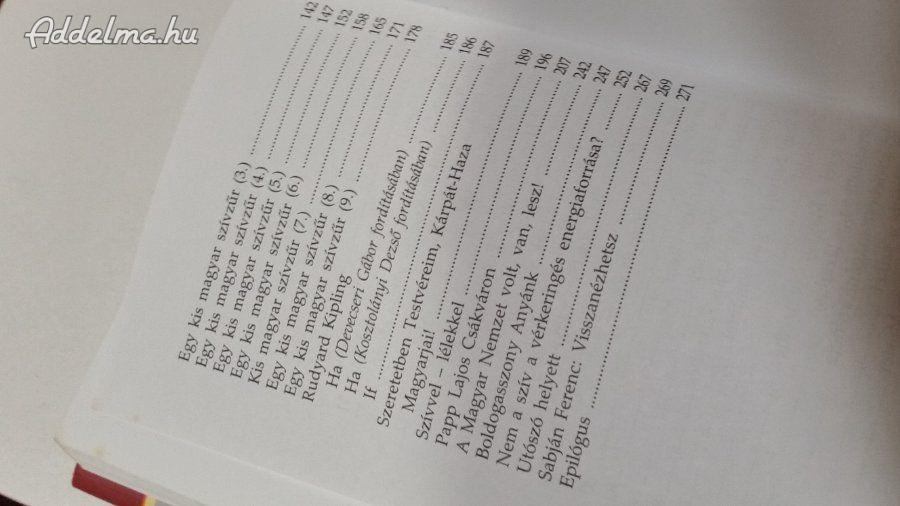 Addelma.hu
Egy kis magyar szívzűr (3.) ........ 142
Egy kis magyar szívzűr (4.) ........ 147
Egy kis magyar szívzűr (5.) ........ 152
Egy kis magyar szívzűr (6.) ........ 158
Kis magyar szívzűr (7.) ........ 165
Egy kis magyar szívzűr (8.) ........ 171
Egy kis magyar szívzűr (9.) ........ 178
Rudyard Kipling
Ha (Devecseri Gábor fordításában) ........ 185
Ha (Kosztolányi Dezső fordításában) ........ 186
If ........ 187
Szeretetben Testvéreim, Kárpát-Haza
Magyarjai! ........ 189
Szívvel – lélekkel ........ 196
Papp Lajos Csákváron ........ 207
A Magyar Nemzet volt, van, lesz! ........ 242
Boldogasszony Anyánk ........ 247
Nem a szív a vérkeringés energiaforrása? ........ 252
Utószó helyett ........ 267
Sabján Ferenc: Visszanézhetsz ........ 269
Epilógus ........ 271